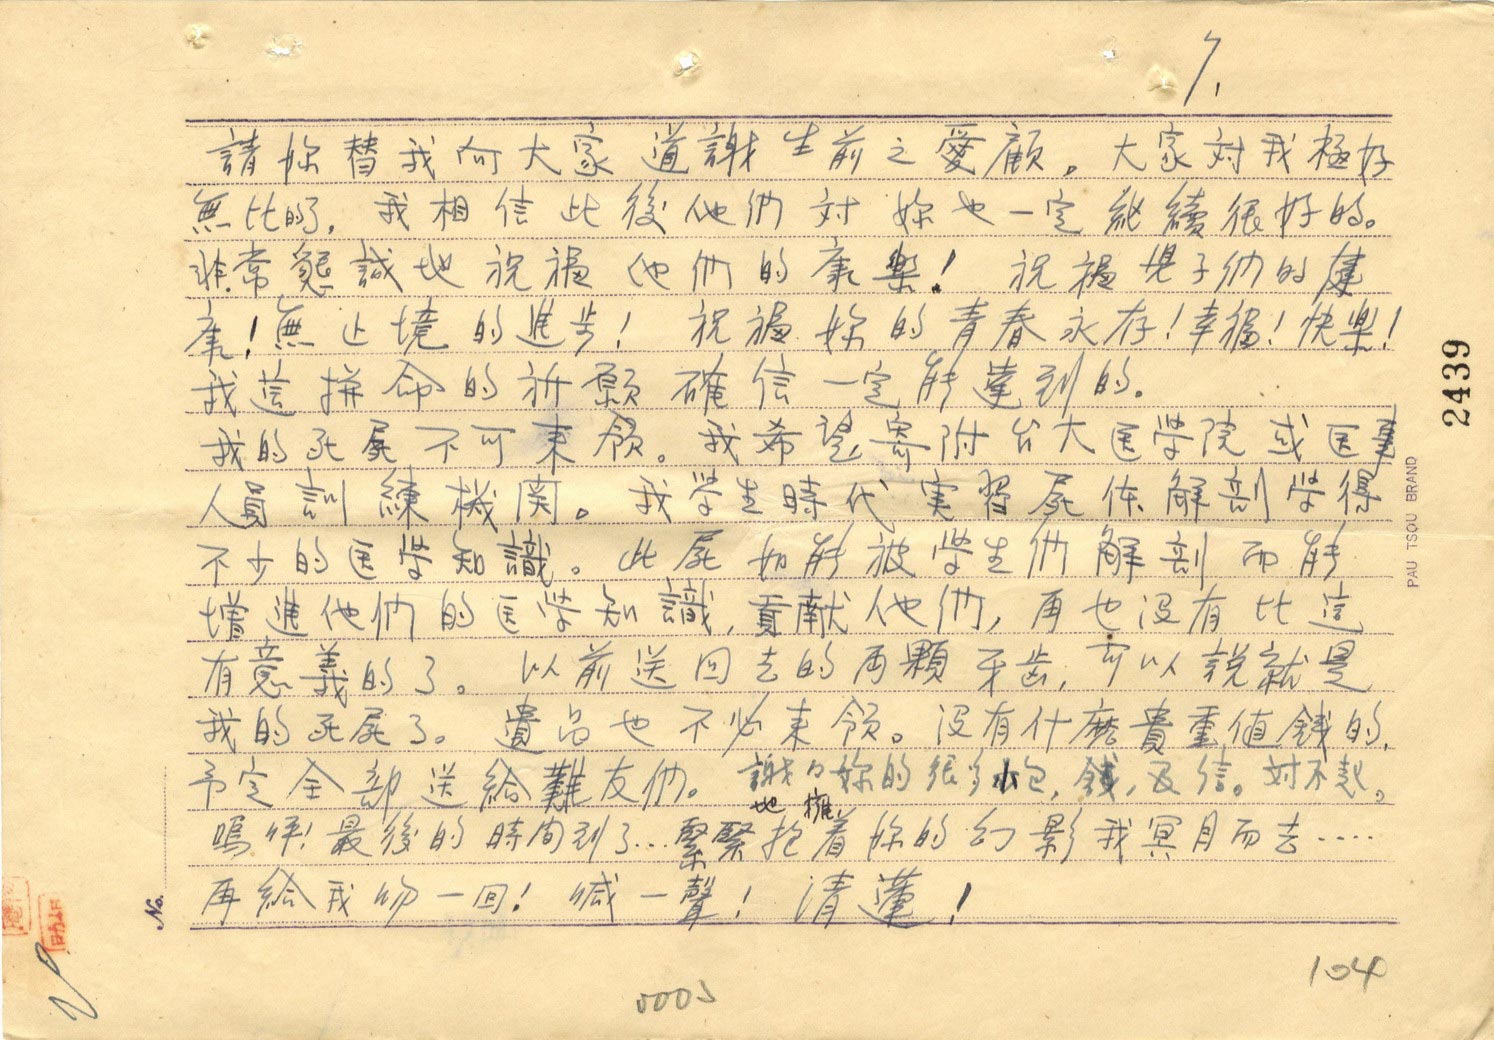 7.
請妳替我向大家道謝生前之愛顧。大家対我極好
無比的。我相信此後他們対妳也一定継續很好的。
非常懇誠地祝福他們的康樂！祝福児子們的健
康！無止境的進步！祝福妳的青春永存！幸福！快樂！
我這拼命的祈願確信一定能達到的。
我的死屍不可来領。我希望寄附台大医学院或医事
人員訓練機関。我学生時代実習屍体解剖学得
不少的医学知識。此屍如能被学生們解剖而能
增進他們的医学知識，貢献他們，再也沒有比這
有意義的了。以前送回去的両顆牙齒，可以説就是
我的死屍了。遺品也不必来領。沒有什麽貴重值錢的，
予定全部送給難友們。謝々妳的很多小包，錢，及信。対不起。
嗚呼！最後的時间到了…緊緊地擁抱着妳的幻影我冥目而去……
再給我吻一回！喊一聲！清蓮！
2439
PAU TSOU BRAND
No.
0005
104